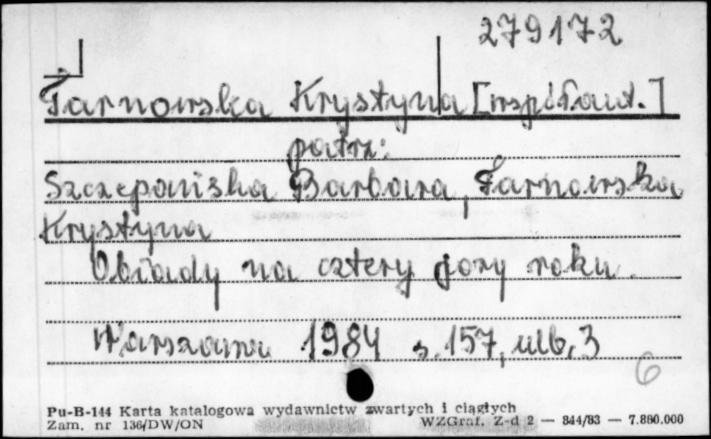 279172
Tarnowska Krystyna [współaut.]
patrz:
Szczepańska Barbara, Tarnowska
Krystyna
Obiady na cztery pory roku.
Warszawa 1984 s. 157, nlb. 3
6
Pu-B-144 Karta katalogowa wydawnictw zwartych i ciągłych
Zam. nr 136/DW/ON WZGraf. Z-d 2 — 844/83 — 7.880.000